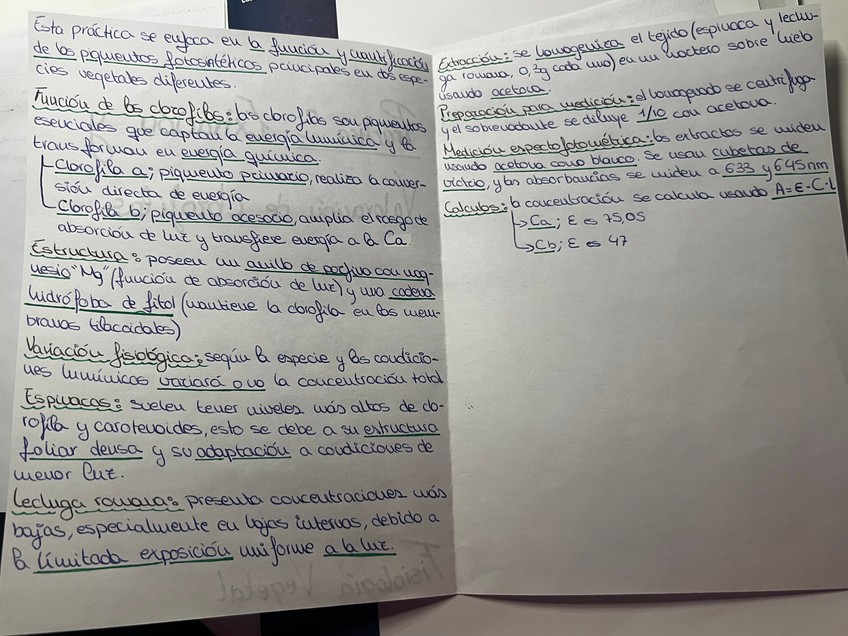 Esta práctica se enfoca en la función y cuantificación
de los pigmentos fotosintéticos principales en dos espe-
cies vegetales diferentes.
Función de las clorofilas: las clorofilas son pigmentos
esenciales que captan la energía lumínica y la
transforman en energía química.
Clorofila a; pigmento primario, realiza la conver-
sión directa de energía
Clorofila b; pigmento accesorio, amplia el rasgo de
absorción de luz y transfiere energía a la Ca.
Estructura: poseen un anillo de porfino con mag-
nesio "Mg" (función de absorción de luz) y una cadena
hidrófoba de fitol (mantiene la clorofila en las mem-
branas tilacoidales)
Variación fisiológica: según la especie y las condicio-
nes lumínicas variará o no la concentración total
Espinacas: suelen tener niveles más altos de clo-
rofila y carotenoides, esto se debe a su estructura
foliar densa y su adaptación a condiciones de
menor luz.
Lechuga romana: presenta concentraciones más
bajas, especialmente en hojas internas, debido a
la limitada exposición uniforme a la luz.
Extracción: se homogeniza el tejido (espinaca y lechu-
ga romana, 0,3g cada uno) en un mortero sobre hielo
usando acetona.
Preparación para medición: el homogenado se centrifuga
y el sobrenadante se diluye 1/10 con acetona.
Medición espectofotométrica: los extractos se miden
usando acetona como blanco. Se usan cubetas de
vidrio, y las absorbancias se miden a 633 y 645nm
Calculos: la concentración se calcula usando A=E·C·L
Ca; E es 75,05
Cb; E es 47
Fisiología Vegetal